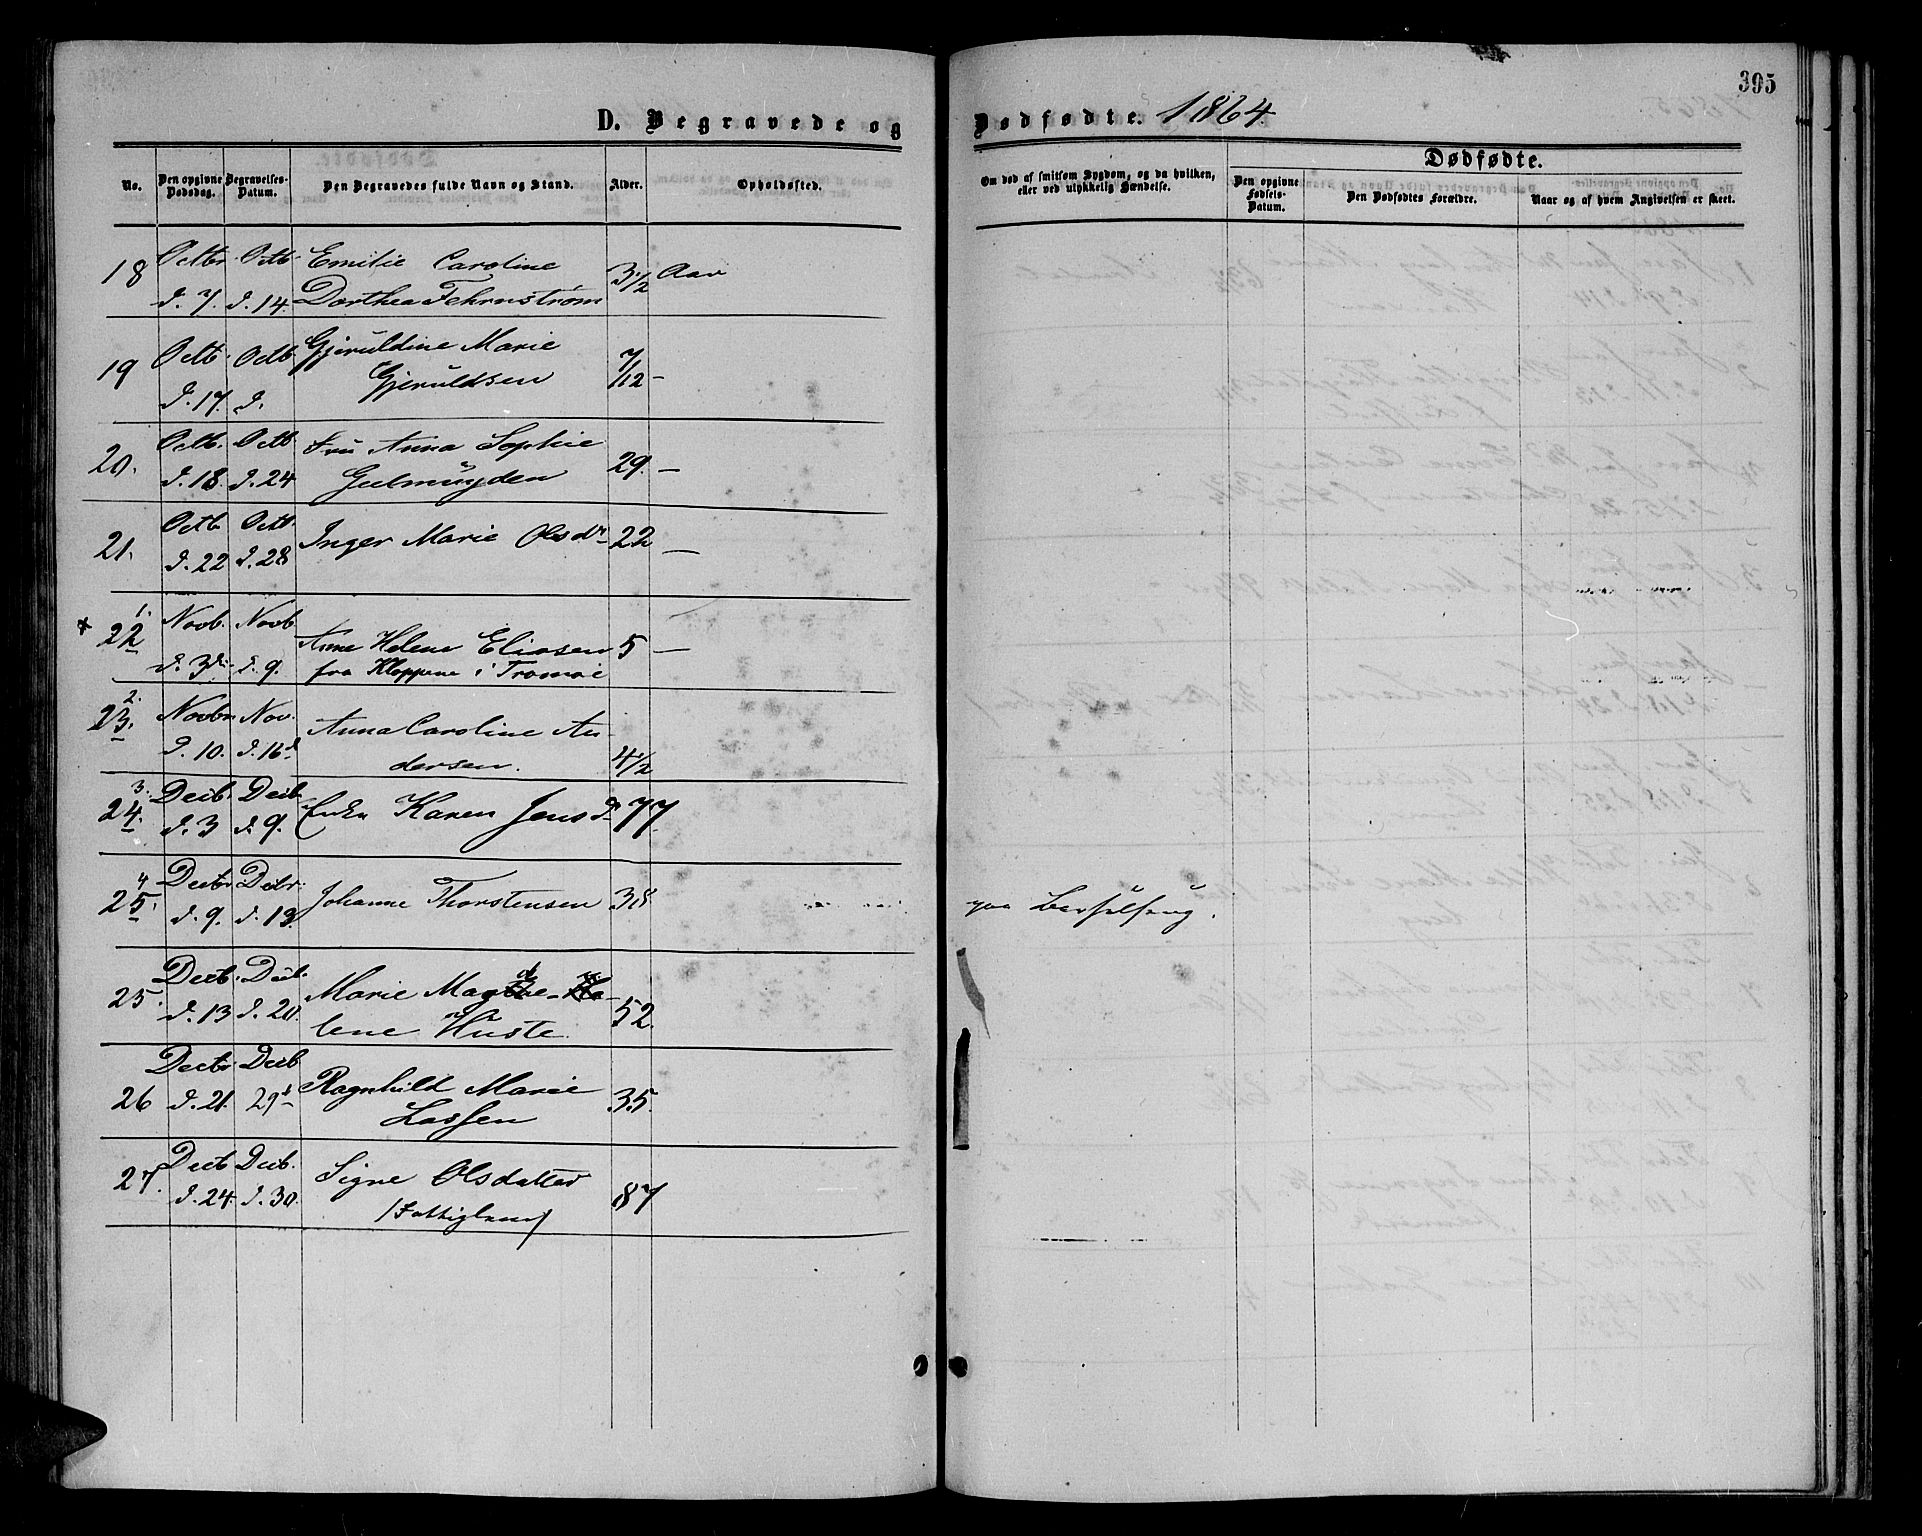 395
D. Begravede og Dødfødte. 1864.
No.
Den opgivne Dødsdag.
Begravelses-Datum.
Den Begravedes fulde Navn og Stand.
Alder.
Opholdssted.
Om død af smitsom Sygdom, og da hvilken, eller ved ulykkelig Hændelse.
Dødfødte.
Den opgivne Fødsels-Datum.
Den Dødfødtes Forældre.
Naar og af hvem Angivelsen er skeet.
18 Octbr. Octb. Emilie Caroline 3 1/2 Aar
d. 7. d. 14. Dorthea Fehrnström
19 Octb. Octb Gjeruldine Marie 7/12 —
d. 17. d. Gjeruldsen
20. Octb. Octb Fru Anna Sophie 29. —
d. 18. d. 24 Gulmüyden
21. Octb Octb. Inger Marie Olsdr 22 —
d. 22 d. 28
1.
* 22 Novb. Novb Anne Helene Eliasen 5 —
d. 3die d. 9. fra Kloppene i Tromøe
2.
23. Novbr Nov. Anna Caroline An-
d. 10. d. 16d dersen. 4 1/2
3.
24. Decb. Decb Enke Karen Jensd. 77.
d. 3 d. 9.
4
25. Decbr Decbr. Johanne Thorstensen 38 paa Barselseng.
d. 9. d. 13.
25. Decb. Decb. Marie Magda-
d. 13 d. 20. lene Huste. 52.
26 Decbr Decb Ragnhild Marie 35.
d. 21. 29d Lassen
27. Decb Decb. Signe Olsdatter 87
d. 24. d. 30. /Fattiglem/